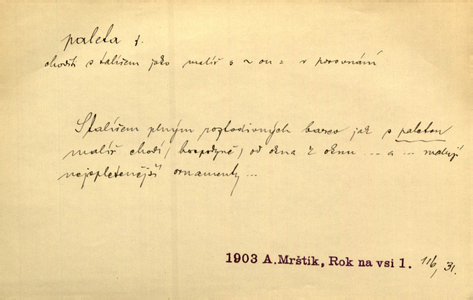 paleta f.
choditi s talířem jako malíř s ~ ou = v porovnání
S talířem plným roztodivných barev jak s paletou
malíř chodí (hospodyně) od okna k oknu ... a ... malují
nejspletenější ornamenty...
1903 A. Mrštík, Rok na vsi 1. 116, 31.